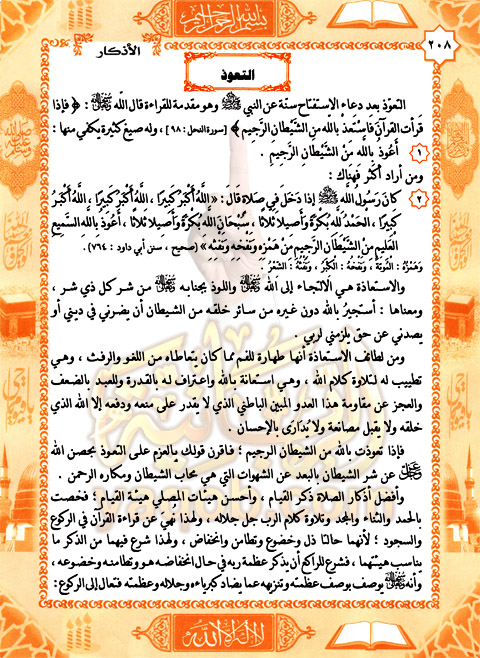 بسم الله الرحمن الرحيم
٢٠٨
الأذكار
التعوذ
التعوّذ بعد دعاء الاستفتاح سنّة عن النبي ﷺ وهو مقدمة للقراءة قال اللّه ﷻ : ﴿ فَإِذَا
قَرَأْتَ القُرْآنَ فَاسْتَعِذْ بِاللَّهِ مِنَ الشَّيْطَانِ الرَّجِيمِ ﴾ [سورة النحل : ٩٨] ، وله صيغ كثيرة يكفي منها :
١ أَعُوذُ بِاللَّهِ مِنَ الشَّيْطَانِ الرَّجِيمِ .
ومن أراد أكثر فهناك :
٢ كانَ رَسُولُ اللَّهِ ﷺ إذا دَخَلَ في صلاة قالَ : « اللَّهُ أَكْبَرُ كَبِيرًا ، اللَّهُ أَكْبَرُ كَبِيرًا ، اللَّهُ أَكْبَرُ
كَبِيرًا ، الحَمْدُ لِلَّهِ بُكْرَةً وَأَصِيلًا ثلاثًا ، سُبْحَانَ اللَّهِ بُكْرَةً وَأَصِيلًا ثلاثًا ، أَعُوذُ بِاللَّهِ السَّمِيعِ
العَلِيمِ مِنَ الشَّيْطَانِ الرَّجِيمِ مِنْ هَمْزِهِ وَنَفْخِهِ وَنَفْثِهِ » (صحيح ، سنن أبي داود : ٧٦٤) .
وَهَمْزُهُ : المُوتَةُ ، وَنَفْخُهُ : الكِبْرُ ، وَنَفْثُهُ : الشِّعْرُ
والاستعاذة هي الالتجاء إلى الله ﷻ واللوذ بجنابه ﷻ من شر كل ذي شر ،
ومعناها : أستجيرُ بالله دون غيره من سائر خلقه من الشيطان أن يضرني في ديني أو
يصدني عن حق يلزمني لربي .
ومن لطائف الاستعاذة أنها طهارة للفم مما كان يتعاطاه من اللغو والرفث ، وهي
تطييب له لتلاوة كلام الله ، وهي استعانة بالله واعتراف له بالقدرة وللعبد بالضعف
والعجز عن مقاومة هذا العدو المبين الباطني الذي لا يقدر على منعه ودفعه إلا الله الذي
خلقه ولا يقبل مصانعة ولا يُدَارَى بالإحسان .
فإذا تعوّذت بالله من الشيطان الرجيم ؛ فاقرن قولك بالعزم على التعوذ بحصن الله
عن شر الشيطان بالبعد عن الشهوات التي هي محاب الشيطان ومكاره الرحمن .
وأفضل أذكار الصلاة ذكر القيام ، وأحسن هيئات المصلي هيئة القيام ؛ فخصت
بالحمد والثناء والمجد وتلاوة كلام الرب جل جلاله ، ولهذا نُهيَ عن قراءة القرآن في الركوع
والسجود ؛ لأنهما حالتا ذل وخضوع وتطامن وانخفاض ، ولهذا شرع فيهما من الذكر ما
يناسب هيئتهما ، فشرع للراكع أن يذكر عظمة ربه في حال انخفاضه هو وتطامنه وخضوعه ،
وأنه ﷻ يوصف بوصف عظمته وتنزيهه عما يضاد كبرياءه وجلاله وعظمته فتعال إلى الركوع :
لا إله إلا الله